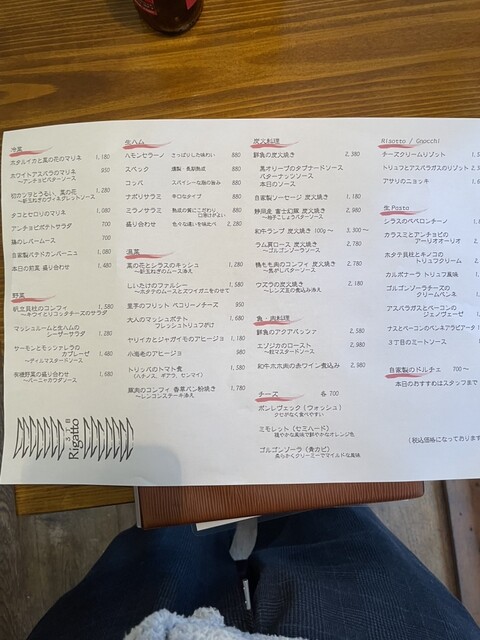 冷菜
ホタルイカと菜の花のマリネ 1,180
ホワイトアスパラのマリネ 930
〜アンチョビバターソース
初カツオとうるい、菜の花 1,280
〜新玉ねぎのヴィネグレットソース
タコとセロリのマリネ 1,080
アンチョビポテトサラダ 700
鶏のレバームース 700
自家製パテドカンパーニュ 1,080
本日の前菜 盛り合わせ 1,480
野菜
帆立貝柱のコンフィ 1,580
〜キウイとリコッタチーズのサラダ
マッシュルームと生ハムの
シーザーサラダ 1,280
サーモンとモッツァレラの
カプレーゼ 1,480
〜ディルマスタードソース
炭焼野菜の盛り合わせ 1,680
〜バーニャカウダソース
3 T B
Rigatto
生ハム
ハモンセラーノ さっぱりした味わい 880
スペック 燻製・長期熟成 880
コッパ スパイシーな豚の旨み 880
ナポリサラミ 辛口なタイプ 880
ミラノサラミ 熟成の質にこだわり 880
口溶けがよい
盛り合わせ 色々な違いを味比べ 2,280
温菜
菜の花とシラスのキッシュ 1,280
〜新玉ねぎのムース添え
しいたけのファルシー 1,580
〜ホタテのムースとズワイガニをのせて
里芋のフリット ペコリーノチーズ 950
大人のマッシュポテト 1,680
フレッシュトリュフがけ
ヤリイカとジャガイモのアヒージョ 1,180
小海老のアヒージョ 980
トリッパのトマト煮 1,380
(ハチノス、ギアラ、センマイ)
鶏肉のコンフィ 香草パン粉焼き 1,780
〜レンコンステーキ添え
炭火料理
鮮魚の炭火焼き 2,380
黒オリーブのタプナードソース
バターナッツソース
本日のソース
自家製ソーセージ 炭火焼き 1,180
静岡産 富士幻豚 炭火焼き 2,980
〜柚子こしょうバターソース
和牛ランプ 炭火焼き 100g〜 3,300〜
〜ゴルゴンゾーラソース
ラム肩ロース 炭火焼き 2,780
〜ゴルゴンゾーラソース
鴨もも肉のコンフィ 炭火焼き 2,780
〜焦がしバターソース
ウズラの炭火焼き 2,180
〜レンズ豆の煮込み添え
魚・肉料理
鮮魚のアクアパッツァ 2,580
エゾジカのロースト 2,980
〜粒マスタードソース
和牛ホホ肉の赤ワイン煮込み 2,980
チーズ 各 700
ポンレヴェック(ウォッシュ)
クセがなく食べやすい
ミモレット(セミハード)
穏やかな風味で鮮やかなオレンジ色
ゴルゴンゾーラ(青カビ)
柔らかくクリーミーでマイルドな風味
Risotto / Gnocchi
チーズクリームリゾット 1,5
トリュフとアスパラガスのリゾット 2,3
アサリのニョッキ 1,6
生 Pasta
シラスのペペロンチーノ
カラスミとアンチョビの
アーリオオーリオ
ホタテ貝柱とキノコの
トリュフクリーム
カルボナーラ トリュフ風味
ゴルゴンゾーラチーズの
クリームペンネ
アスパラガスとベーコンの
ジェノヴェーゼ
ナスとベーコンのペンネアラビアータ
3丁目のミートソース
自家製のドルチェ 700〜
本日のおすすめはスタッフまで
(税込価格になっております